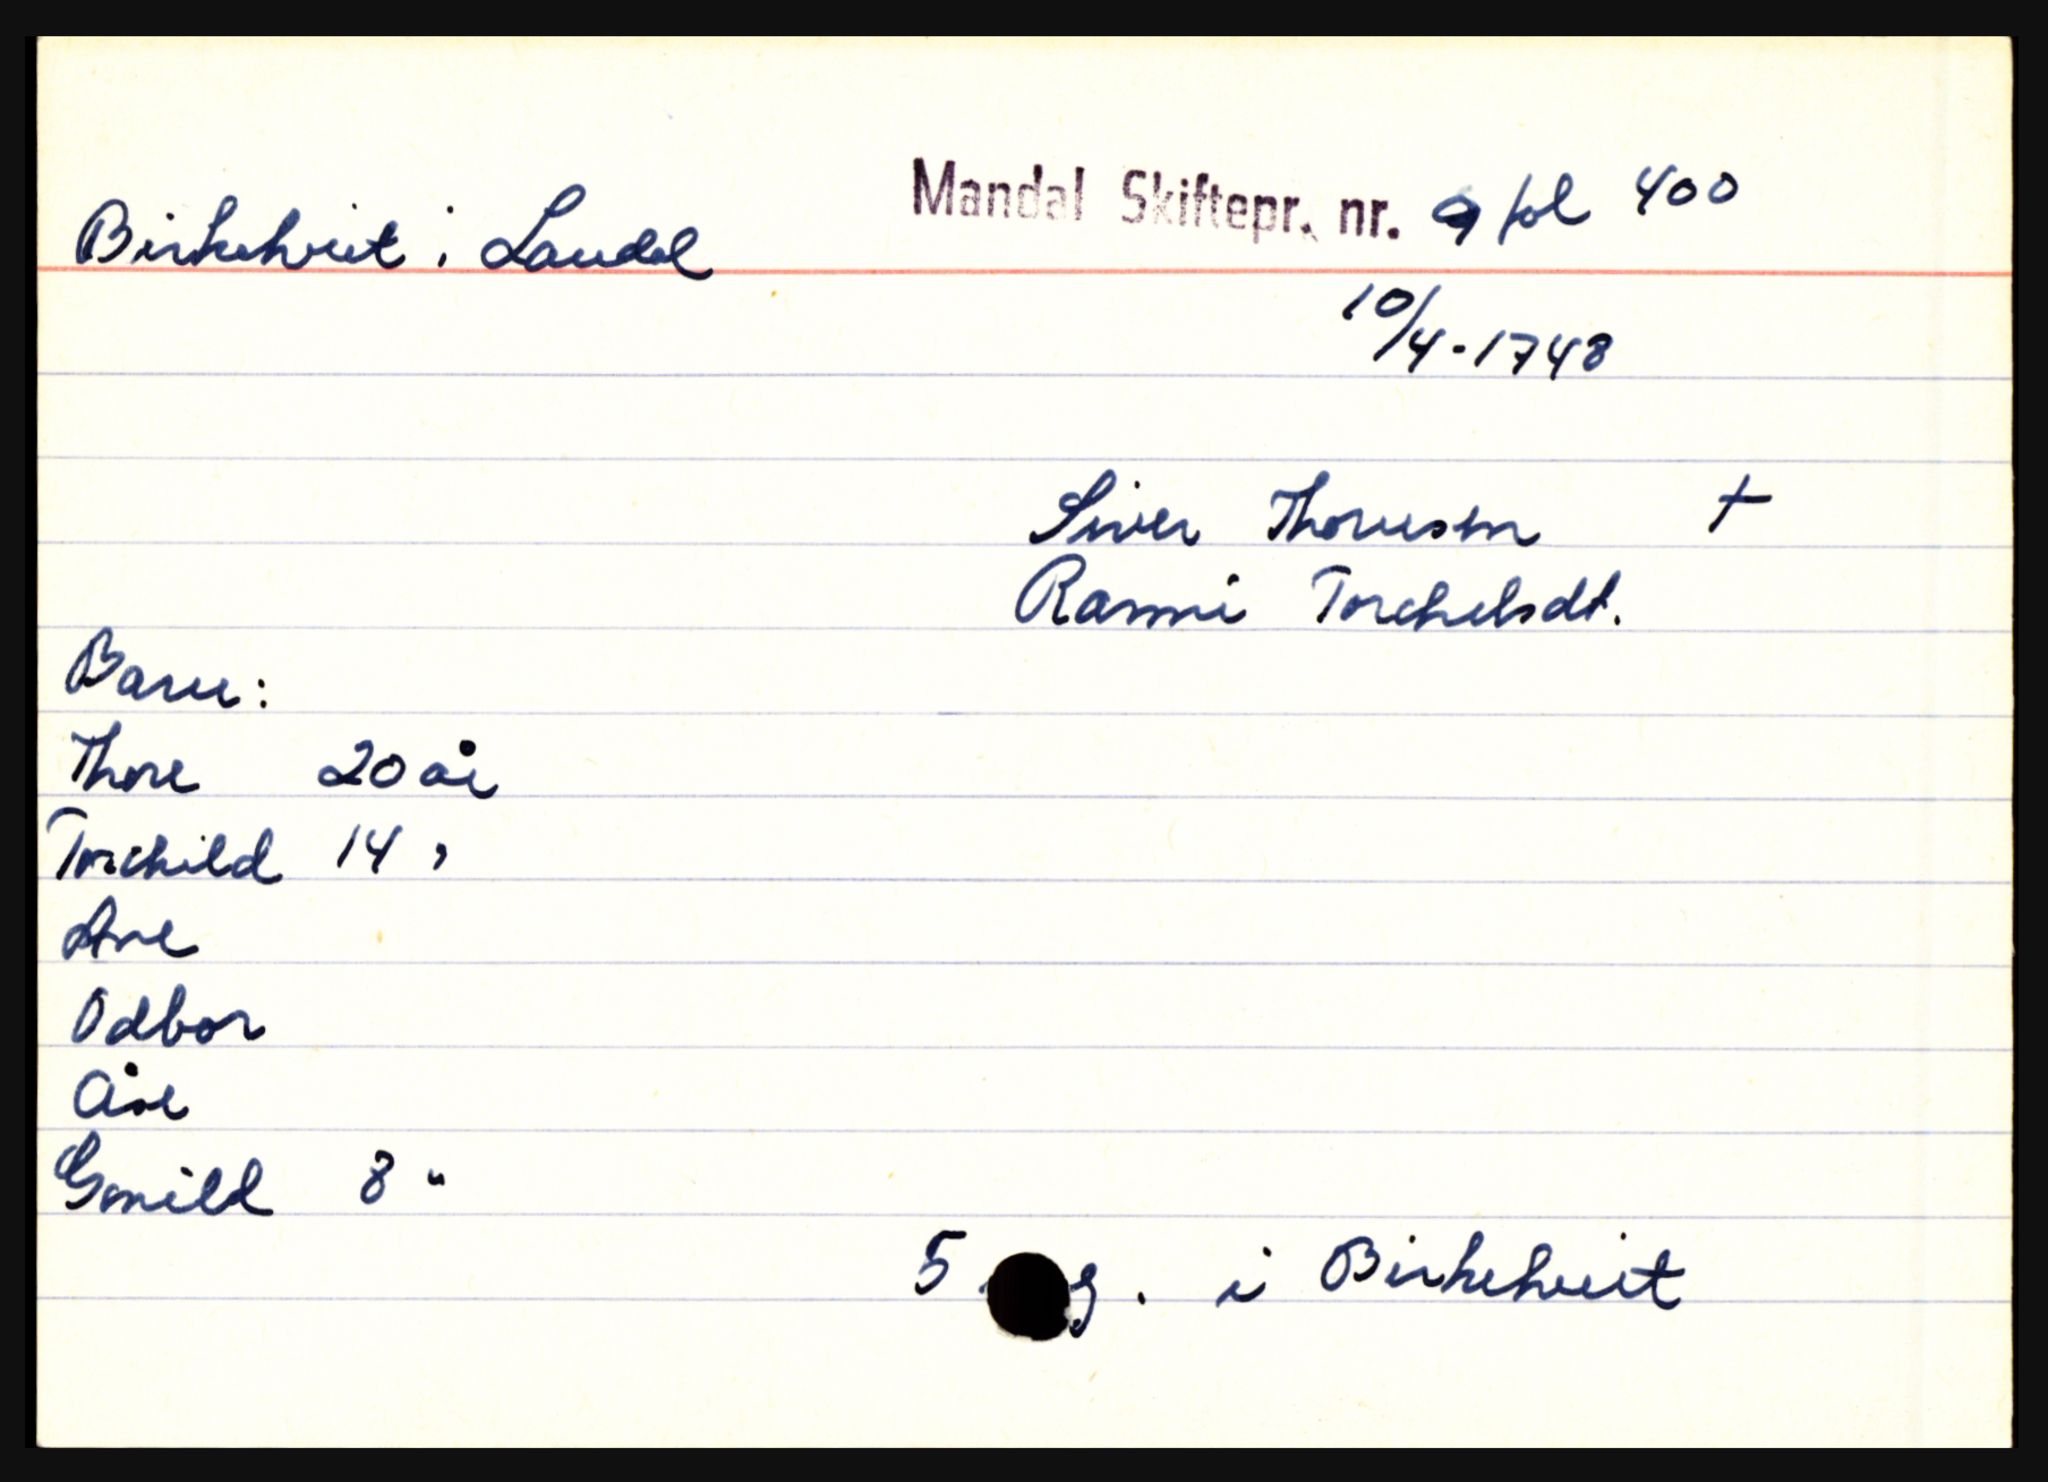 Mandal Skiftepr. nr. 9 fol 400
Birkehveit i Laudal
10/4-1748
Siver Thoresen †
Ranni Torchelsdt.
Barn:
Thore 20 år
Torchild 14 "
Ane
Odbor
Åse
Gonild 8 "
5 g. i Birkehveit